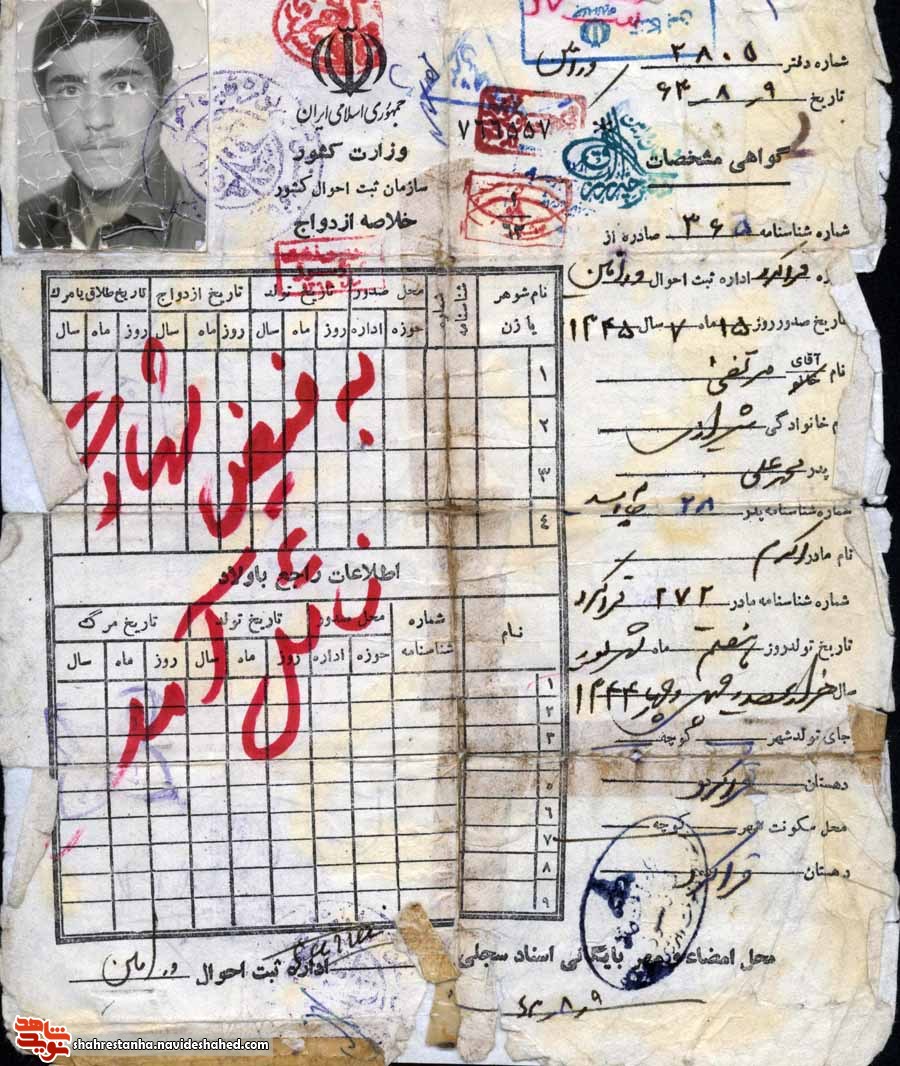 جمهوری اسلامی ایران
وزارت کشور
سازمان ثبت احوال کشور
خلاصه ازدواج
۷۶۶۵۵۷
شماره دفتر ۲۸۰۵ ورامین
تاریخ ۹-۸-۶۴
گواهی مشخصات
شماره شناسنامه ۳۶۵ صادره از
اداره ثبت احوال ورامین
تاریخ صدور روز ۱۵ ماه ۷ سال ۱۳۴۵
نام آقای مرتضی
نام خانوادگی شیرازی
پدر محمدعلی
شماره شناسنامه پدر ۲۸
نام مادر اکرم
شماره شناسنامه مادر ۲۷۲
تاریخ تولد روز هفتم ماه شهریور
سال هزار سیصد و چهل و چهار ۱۳۴۴
جای تولد شهر کوچه
دهستان
محل سکونت شهر کوچه
دهستان
نام شوهر یا زن
شماره شناسنامه
محل صدور
تاریخ تولد
تاریخ ازدواج
تاریخ طلاق یا مرگ
حوزه اداره روز ماه سال روز ماه سال روز ماه سال
۱
۲
۳
۴
به فیض شهادت
نائل آمد
اطلاعات راجع باولاد
نام
شماره شناسنامه
محل صدور
تاریخ تولد
تاریخ مرگ
حوزه اداره روز ماه سال روز ماه سال
۱
۲
۳
۵
۶
۷
۸
۹
محل امضاء و مهر بایگانی اسناد سجلی
اداره ثبت احوال ورامین
۹-۸-۶۴
نوید شاهد
shahrestanha.navideshahed.com